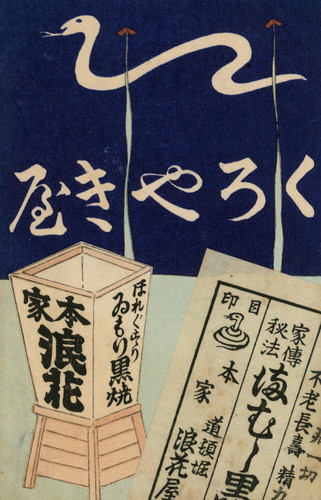 くろやき屋
本家
浪花
ほれぐすり
ゐもり黒焼
一切
不老長壽 精
家傳秘法
まむし黒
目印
本家
道頓堀
浪花屋